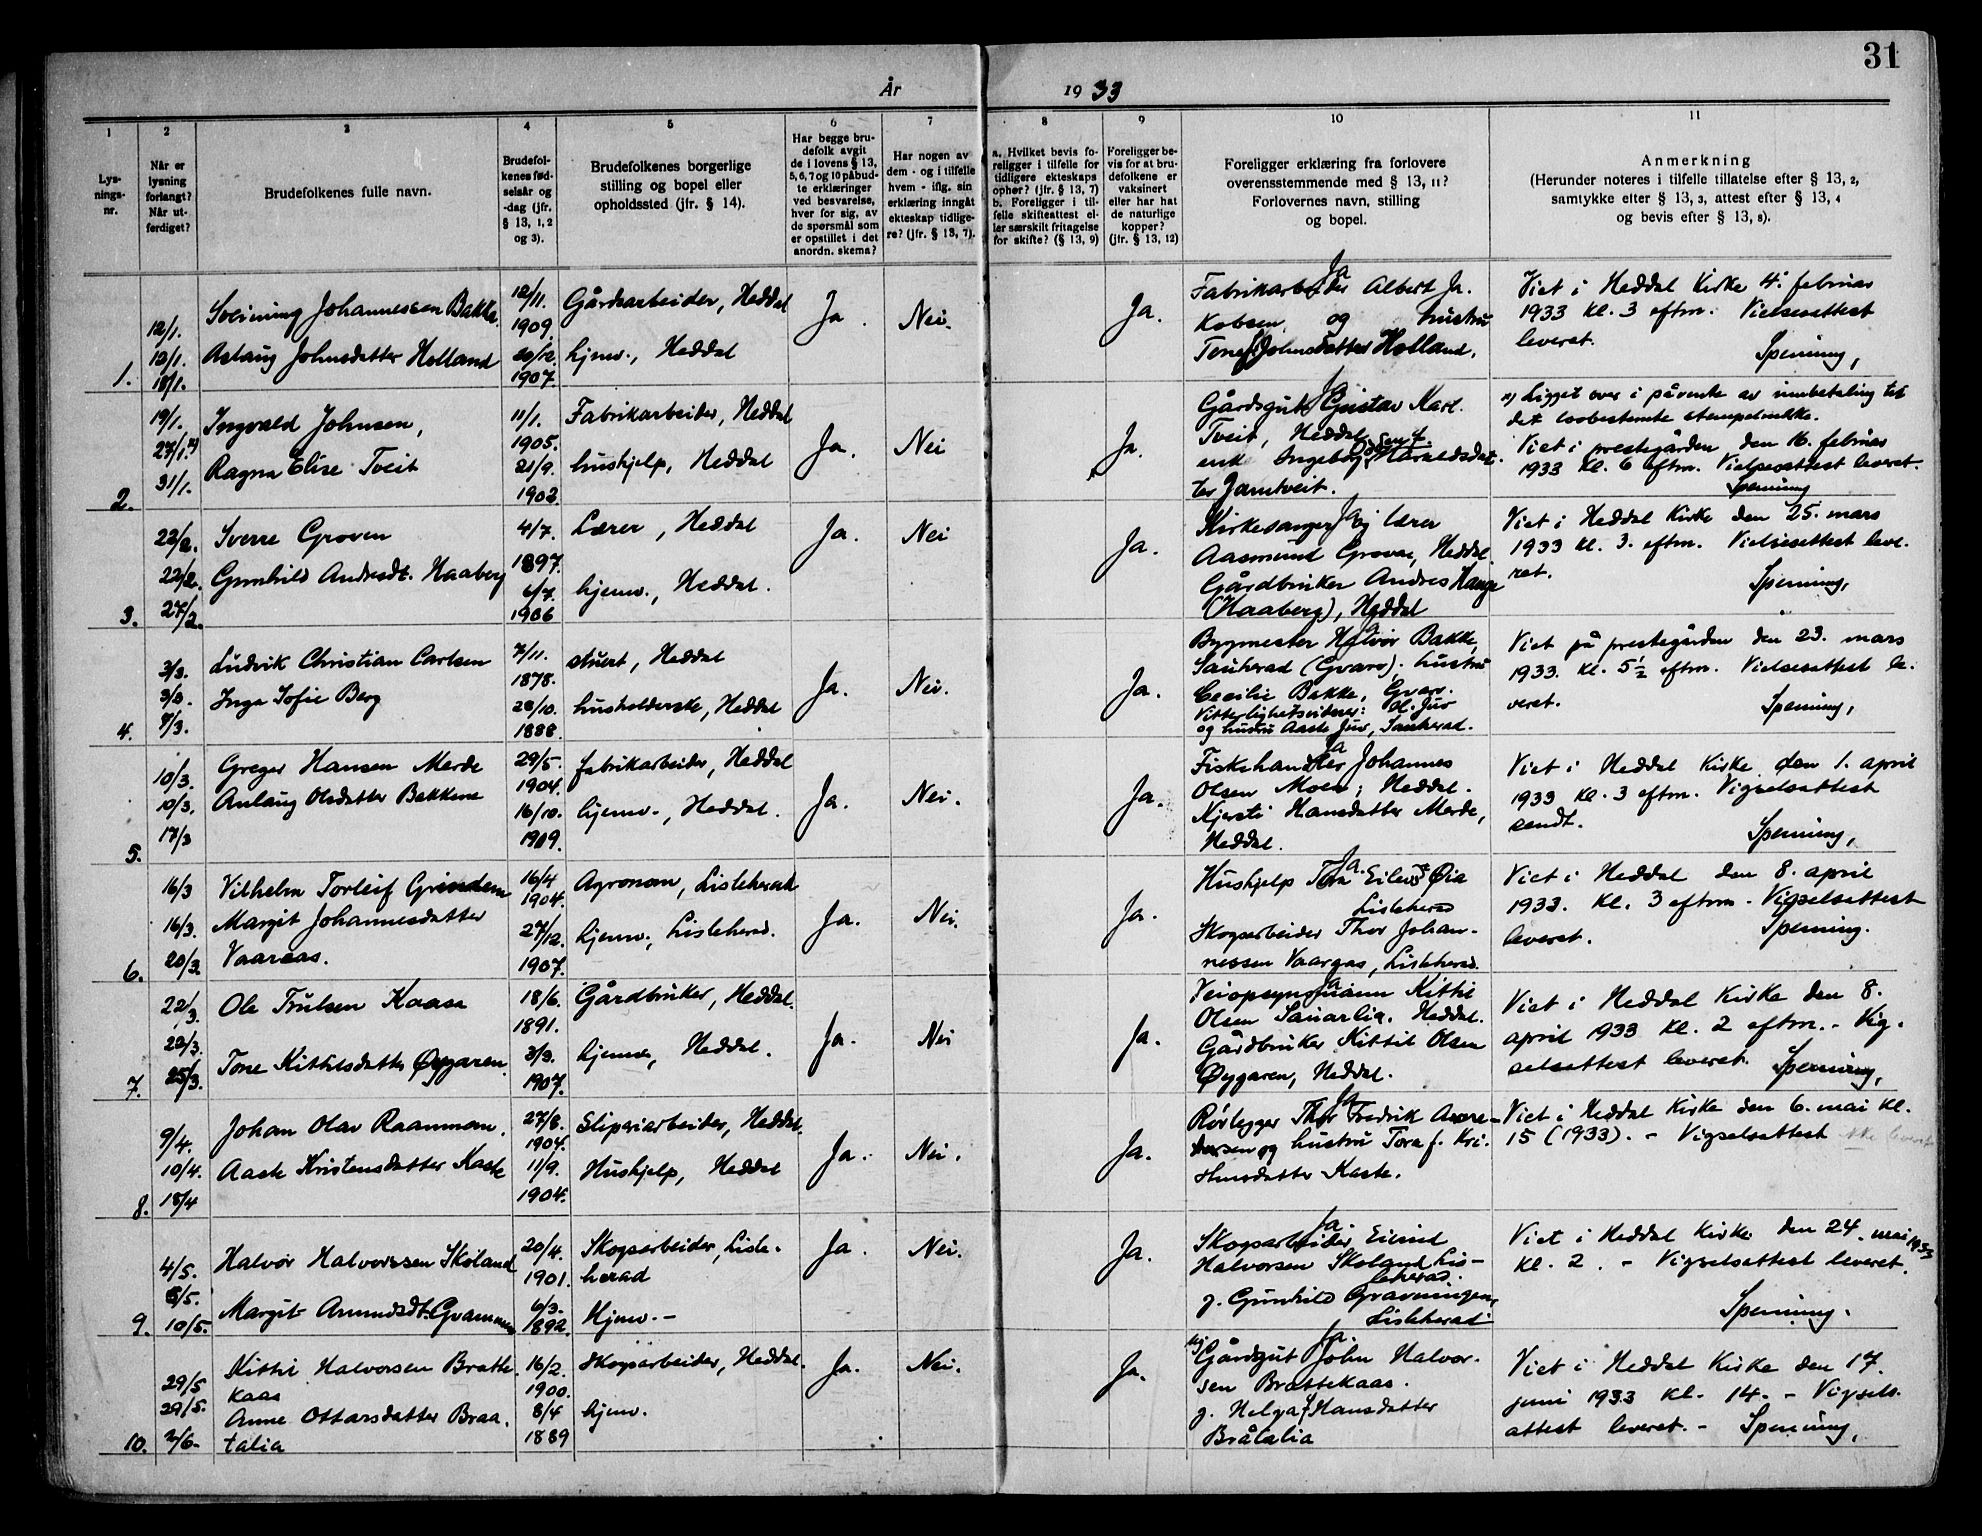 31
År 1933
1
Lys-
nings-
nr.
2
Når er
lysning
forlangt?
Når ut-
ferdiget?
3
Brudefolkenes fulle navn.
4
Brudefol-
kenes fød-
selsår og
-dag (jfr.
§ 13, 1, 2
og 3).
5
Brudefolkenes borgerlige
stilling og bopel eller
opholdssted (jfr. § 14).
6
Har begge bru-
defolk avgit
de i lovens § 13,
5, 6, 7 og 10 påbud-
te erklæringer
ved besvarelse,
hver for sig, av
de spørsmål som
er opstillet i det
anordn. skema?
7
Har nogen av
dem - og i tilfelle
hvem - iflg. sin
erklæring inngått
ekteskap tidlige-
re? (jfr. § 13, 7).
8
a. Hvilket bevis fo-
religger i tilfelle for
tidligere ekteskaps
ophør? (jfr. § 13, 7)
b. Foreligger i til-
felle skifteattest el-
ler særskilt fritagelse
for skifte? (§ 13, 9)
9
Foreligger be-
vis for at bru-
defolkene er
vaksinert
eller har hat
de naturlige
kopper?
(jfr. § 13, 12)
10
Foreligger erklæring fra forlovere
overensstemmende med § 13, 11?
Forlovernes navn, stilling
og bopel.
11
Anmerkning
(Herunder noteres i tilfelle tillatelse efter § 13, 2,
samtykke efter § 13, 3, attest efter § 13, 4
og bevis efter § 13, 8).
1.
12/1.
12/1.
18/1.
Sveinung Johannessen Bakka
Aslaug Johnsdatter Holland
12/11.
1909.
20/12.
1907.
Gårdsarbeider, Heddal
hjemv., Heddal
Ja.
Nei.
Ja.
Ja
Fabrikarbeider Albert Ja-
kobsen, og hustru
Tone f. Johnsdatter Holland.
Viet i Heddal Kirke 4. februar
1933 kl. 3 eftm. Vielsesattest
leveret.
Spenning,
2.
19/1.
27/1.*)
31/1.
Ingvald Johnsen,
Ragna Elise Tveit
11/1.
1905.
21/9.
1902.
Fabrikarbeider, Heddal
hushjelp, Heddal
Ja.
Nei
Ja.
Ja
Gårdsgutt Gustav Karl.
Tveit, Heddal
enk Ingeborg Haraldsdat-
ter Jamtveit.
*) Ligget over i påvente av innbetaling til
det lovbestemte stempelmerke.
Viet i prestegården den 16. februar
1933 kl. 6 eftm. Vielsesattest leveret.
Spenning
3.
22/2.
22/2.
27/2.
Sverre Groven
Gunhild Andresdt. Haaberg
4/7.
1897.
6/7.
1906
Lærer, Heddal
hjemv., Heddal.
Ja.
Nei
Ja.
Ja
Kirkesanger og lærer
Aasmund Grovae, Heddal.
Gårdbruker Andres Hauge
(Haaberg), Heddal
Viet i Heddal Kirke den 25. mars
1933 kl. 3. eftm. Vielsesattest leve-
ret.
Spenning,
4.
3/3.
3/3.
7/3.
Ludvik Christian Carlsen
Inga Sofie Berg
7/11.
1878.
28/10.
1888.
stuert, Heddal
husholderske, Heddal
Ja.
Nei.
Ja.
Ja
Bygmester Halvor Bakke,
Sauherad (Gvarv), hustru
Cecilie Bakke, Gvarv.
Vitterlighetsvidner: Ol. Juv
og hustru Aaste Juv, Sauherad.
Viet på prestegården den 23. mars
1933. kl. 5½ eftm. Vielsesattest le-
veret.
Spenning,
5.
10/3.
10/3.
17/3
Greger Hansen Merde
Anlaug Olsdatter Bakkene
29/5.
1904.
16/10.
1909.
fabrikarbeider, Heddal
hjemv., Heddal.
Ja.
Nei.
Ja.
Ja
Fiskehandler Johannes
Olsen Moen, Heddal.
Kjersti Hansdatter Merde,
Heddal.
Viet i Heddal Kirke den 1. april
1933 kl. 3 eftm. Vigselsattest
sendt.
Spenning,
6.
16/3
16/3.
20/3.
Vilhelm Torleif Grindem
Margit Johannesdatter
Vaaraas.
16/4
1904.
27/12.
1907.
Agronom, Lisleherad
hjemv., Lisleherad.
Ja.
Nei.
Ja.
Ja.
Hushjelp Tora Eilevs Øia
Lisleherad
Skogsarbeider Thor Johan-
nessen Vaaraas, Lisleherad.
Viet i Heddal den 8. april
1933. kl. 3 eftm. - Vigselsattest
leveret.
Spenning.
7.
22/3.
22/3.
25/3.
Ole Trulsen Kaasa
Tone Kittilsdatter Øygaren
18/6.
1891.
3/3.
1907.
Gårdbruker, Heddal.
hjemv, Heddal.
Ja.
Nei
Ja.
Ja
Veiopsynsmann Kittil
Olsen Sauarlia, Heddal.
Gårdbruker Kittil Olsen
Øygaren, Heddal.
Viet i Heddal Kirke den 8.
april 1933 kl. 2 eftm. - Vig-
selsattest leveret.
Spenning,
8.
9/4.
10/4.
18/4
Johan Olav Raamman.
Aase Kristensdatter Kaste
27/8.
1904.
11/9.
1904.
Sliperiarbeider, Heddal.
Hushjelp, Heddal
Ja.
Nei.
Ja.
Ja
Rørlegger Thor Fredrik
og hustru Tora f. Kri-
stensdatter Kaste.
Viet i Heddal Kirke den 6. mai kl.
15 (1933). - Vigselsattest
9.
4/5.
5/5.
10/5.
Halvor Halvorsen Skoland
Margit Amundsdt. Gvammen
20/4.
1901.
6/3.
1892.
Skogsarbeider, Lisle-
herad
Hjemv. -
Ja.
Nei.
Ja.
Ja.
Skogsarbeider Eivind
Halvorsen Skoland Lis-
leherad.
g. Gunhild Gravningen,
Lisleherad
Viet i Heddal Kirke den 24. mai 1933
kl. 2. - Vigselsattest leveret.
Spenning.
10.
29/5
29/5.
2/6.
Kittil Halvorsen Bratte-
kaas
Anne Ottarsdatter Braa-
talia
16/2.
1900.
8/4
1889
Skogsarbeider, Heddal.
hjemv.
Ja.
Nei.
Ja
Ja.
Gårdsgut John Halvor-
sen Brattekaas.
g. Helga Hansdatter
Bråtalia
Viet i Heddal Kirke den 17.
juni 1933 kl. 14. - Vigsels-
attest leveret. - Spenning,